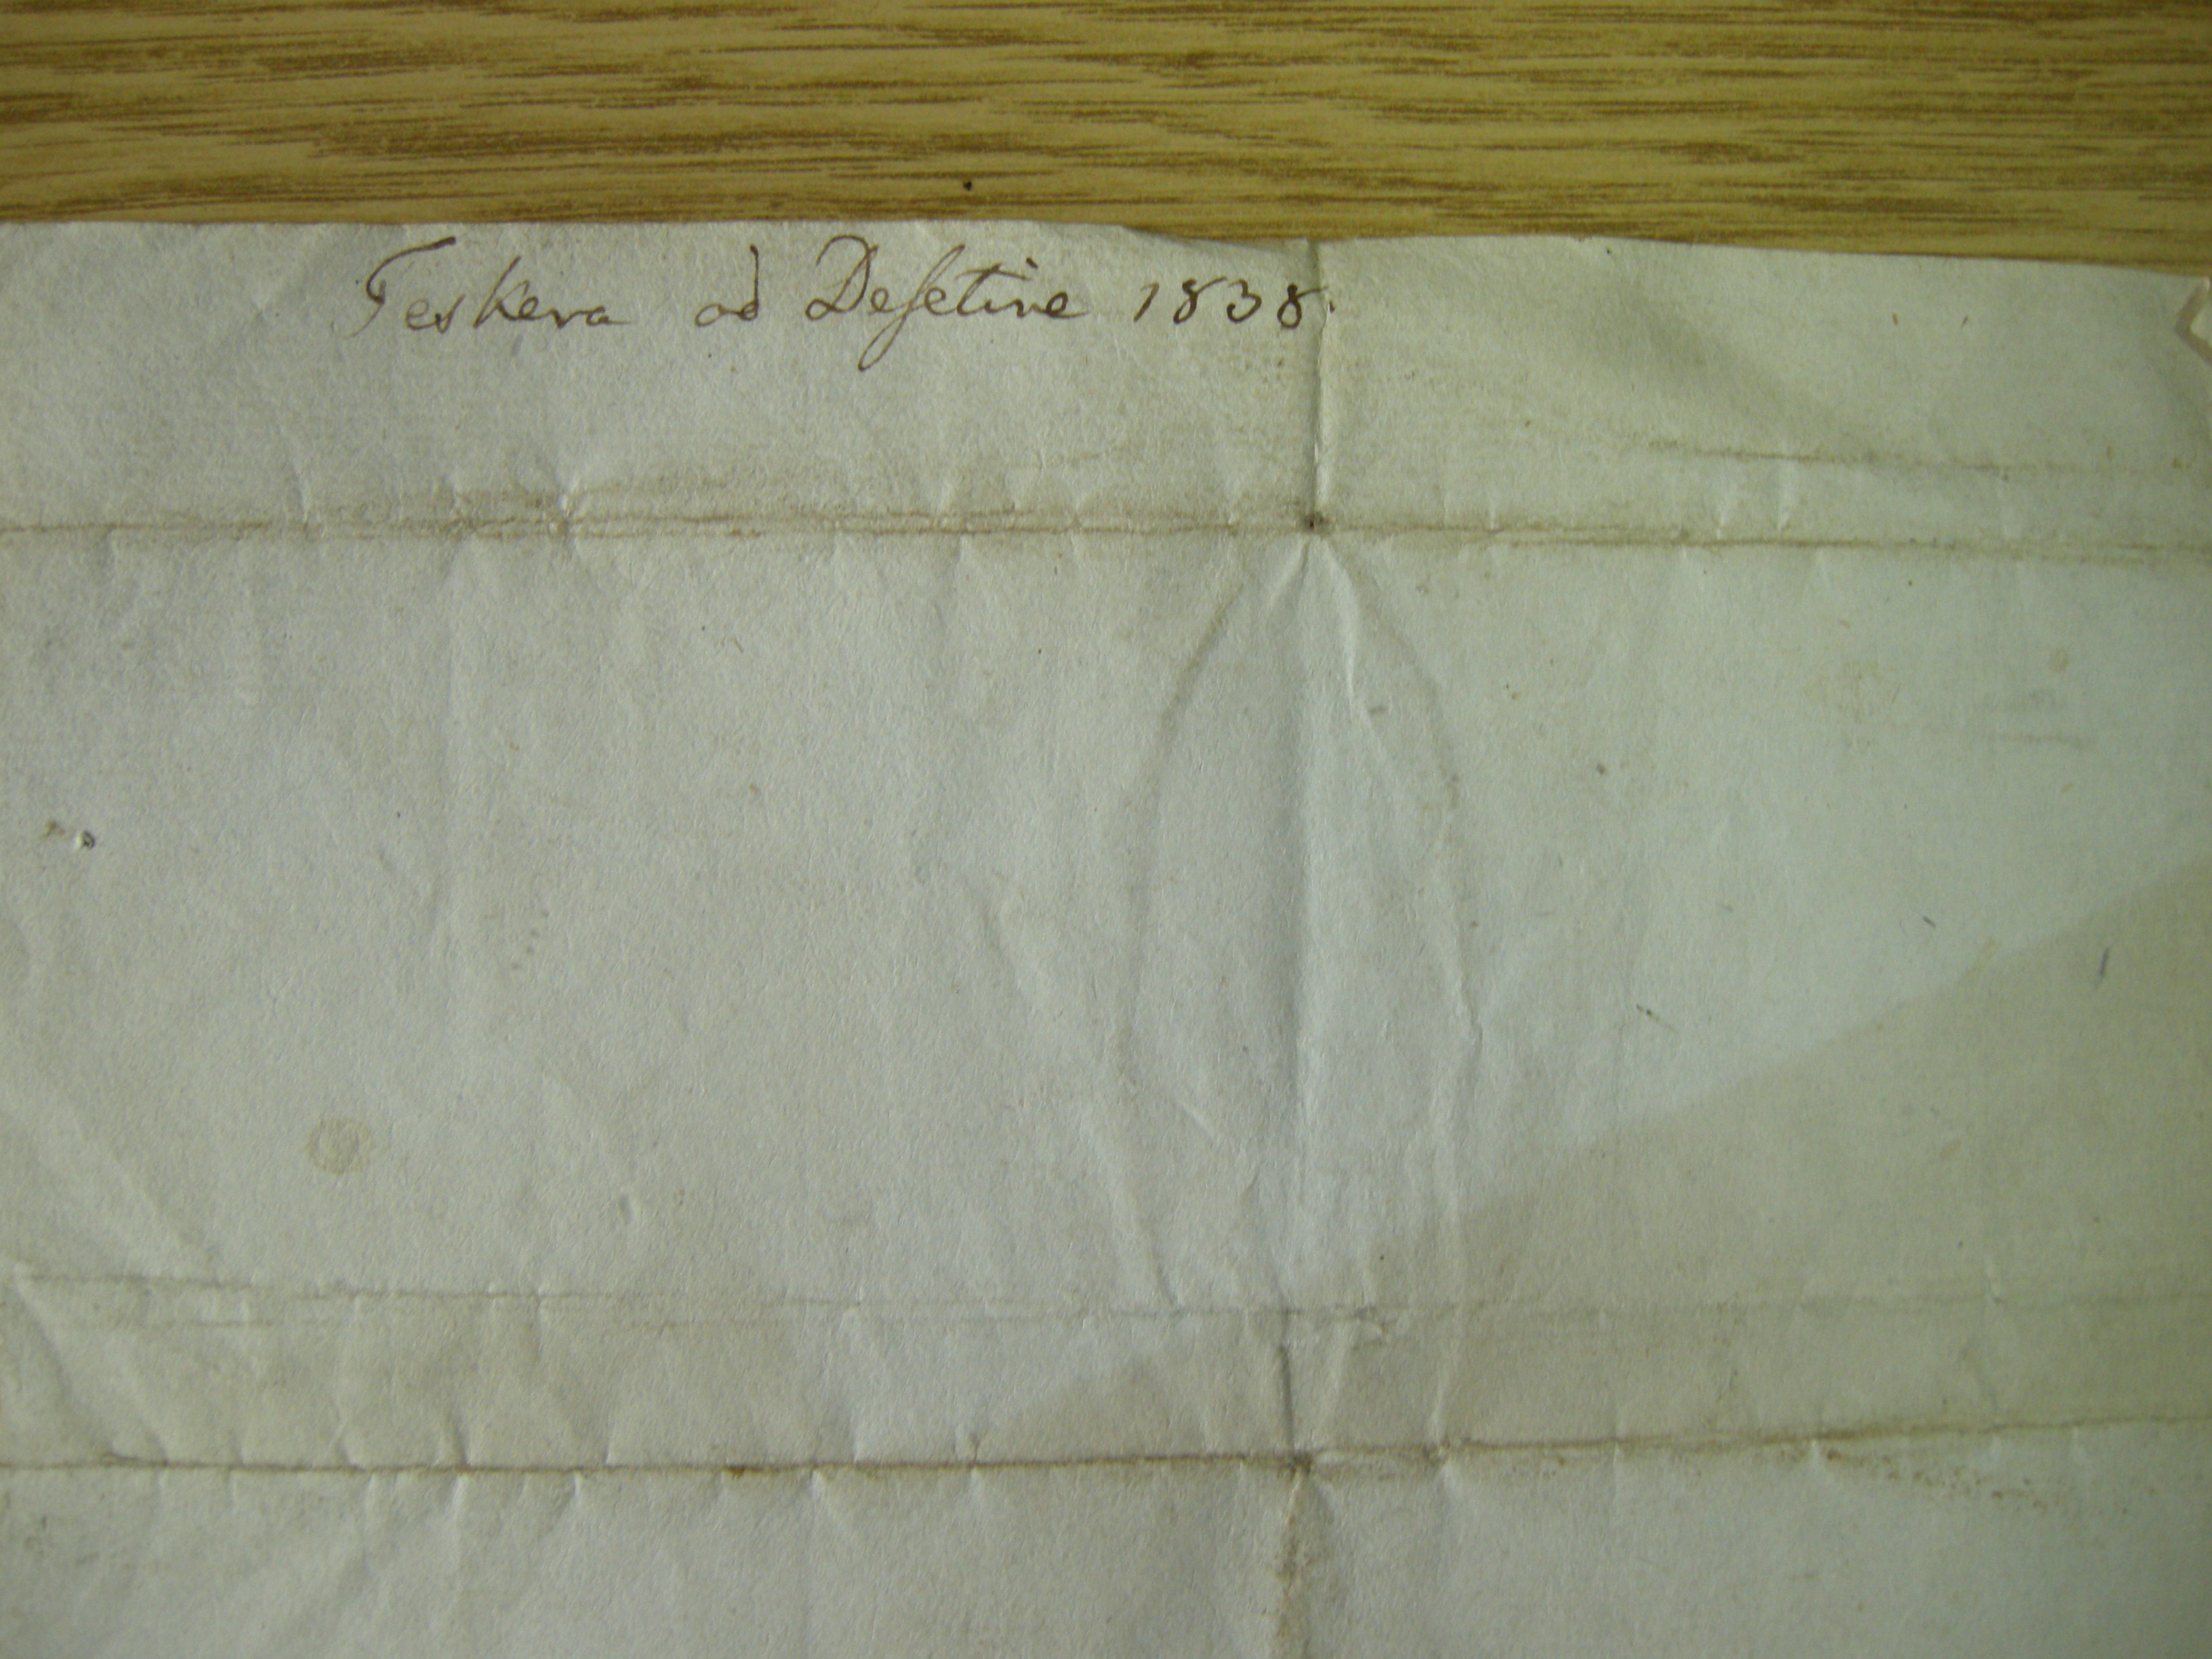 Teskera od Deſetine 1838.